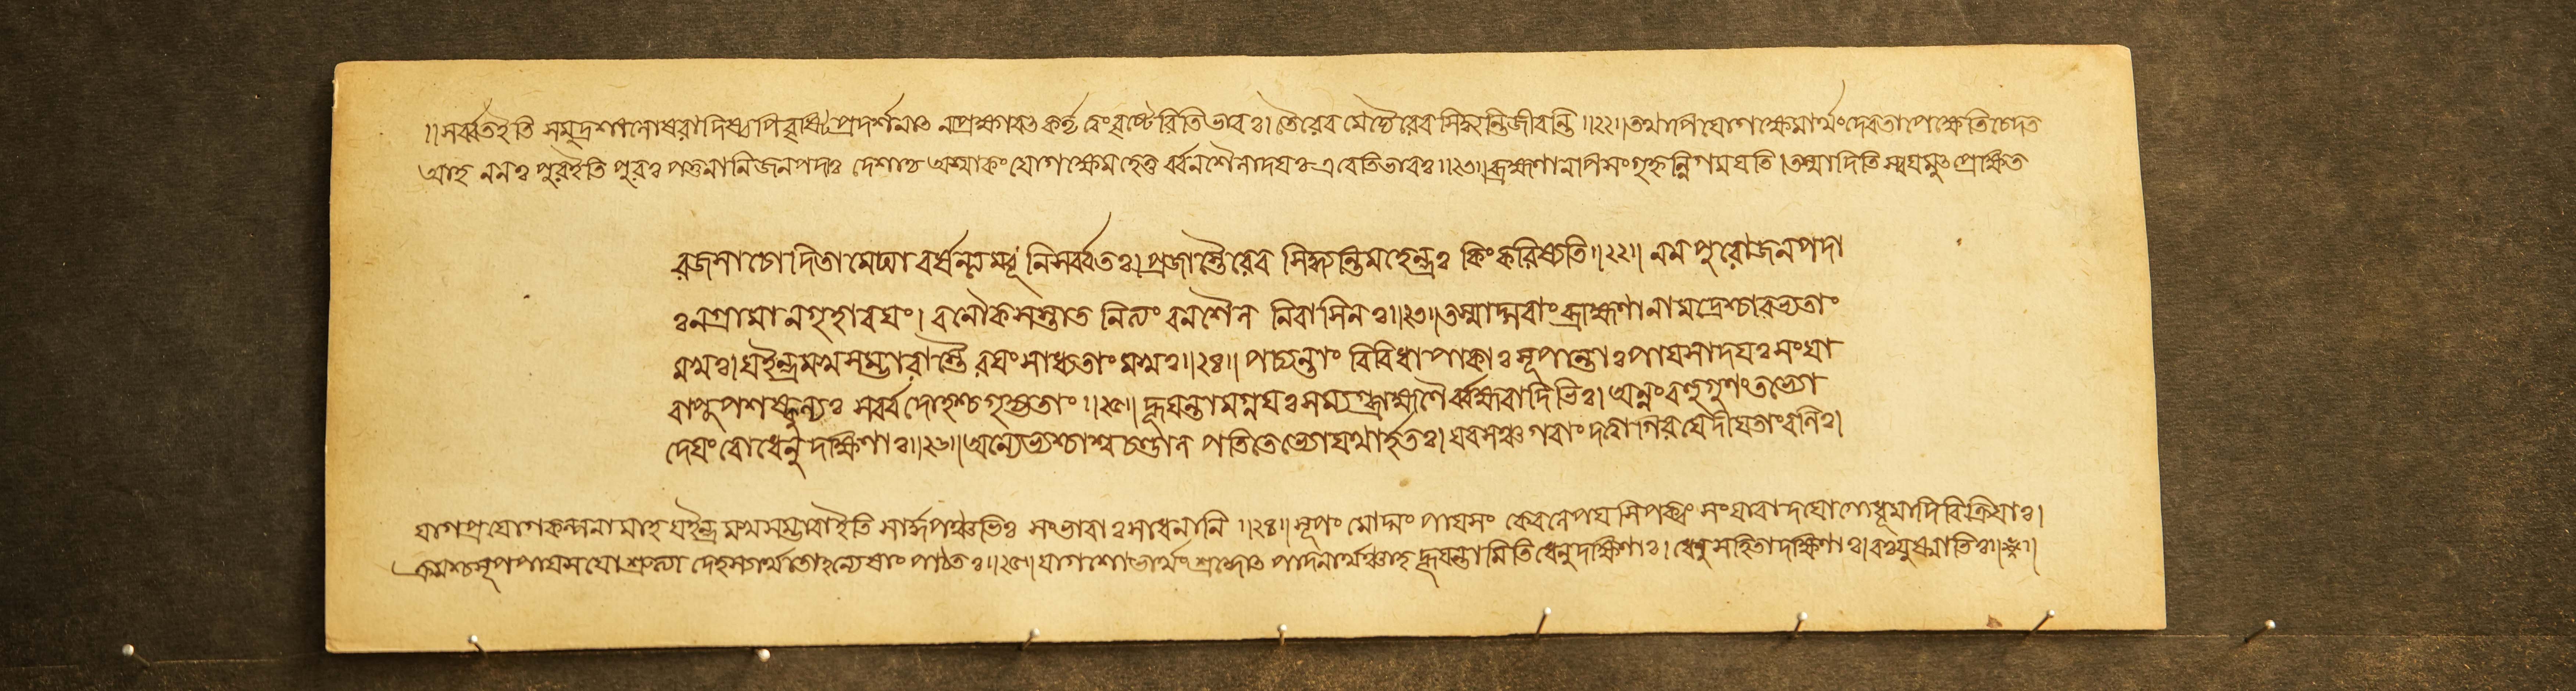 ।। সর্ব্বতইতি সমুদ্রশালোষরাদিষ্বপিবৃষ্টিপ্রদর্শনাৎ নপ্রহ্মগবৎকর্তৃ বেং বৃষ্টেরিতিভাবঃ। তৈরেব মেঘৈরেব সিদ্ধ্যন্তিজীবন্তি ।।২২।।তথাপিযোগক্ষেমার্থংদেবতাপেক্ষেতিচেদত
আহ ননঃ পুরইতি পুরঃ পত্তনানিজনপদাঃ দেশাশ্চ অস্মাকং যোগক্ষেমহেতু বর্বনশৈলাদয়ঃ এবেতিভাবঃ।।২৩।।ব্রাহ্মণানাপসংগৃহ্নন্নিগময়তি।তস্মাদিতি স্বয়মুৎপ্রোক্ষিত
রজসাচোদিতামেঘাবর্ষন্ত্যম্বূনিসর্ব্বতঃ। প্রজাস্তৈরেব সিদ্ধ্যন্তিমহেন্দ্রঃ কিংকরিষ্যতি।।২২।। ননপুরোজনপদা
ঃনগ্রামানগৃহাবয়ং। বনৌকসস্তাত নিত্যং বনশৈল নিবাসিনঃ।।২৩।।তস্মাদ্গবাংব্রাহ্মণানামদ্রেশ্চারভ্যতাং
মখঃ।যইন্দ্রমখসম্ভারাস্তৈরয়ং সাধ্যতাং মখঃ।।২৪।। পাচ্যন্তাং বিবিধাপাকাঃ সূপান্তাঃ পায়সাদয়ঃ সংযা
বাপূপশষ্কুল্যঃ সর্ব্বদোহশ্চগৃহ্যতাং ।।২৫।। হূয়ন্তামগ্নয়ঃ সম্যগ্ব্রাহ্মণৈর্ব্বহ্মবাদিভিঃ। অন্নংবহুগুণংতেভ্যো
দেয়ং বোধেনুদক্ষিণাঃ।।২৬।।অন্যেভ্যশ্চাশ্বচণ্ডাল পতিতেভ্যোযথার্হতঃ। যবসঞ্চ গবাং দত্ত্বাগিরয়েদীয়তাংবলিঃ।
যাগপ্রয়োগকল্পনামাহ যইন্দ্র মখসম্ভাবাইতি সার্দ্ধপঞ্চভিঃ সংভারাঃ সাধনানি ।।২৪।। সূপং মৌদ্গং পায়সং কেবলেপয়সিপক্বং সংযাবাদয়োগোধূমাদিবিক্রিয়াঃ।
ক্রমশ্চসূপপায়সযোশ্রুত্যা দেহসর্গার্থাতোহন্যেষাং পাঠতঃ।।২৫।। যাগশোভার্থং শ্রদ্ধোৎপাদনার্থঞ্চাহ হূয়ন্তামিতিধেনুদক্ষিণাঃ। ধেনুসহিতাদক্ষিণাঃ। বঃযুষ্মাভিঃ।।২৬।।